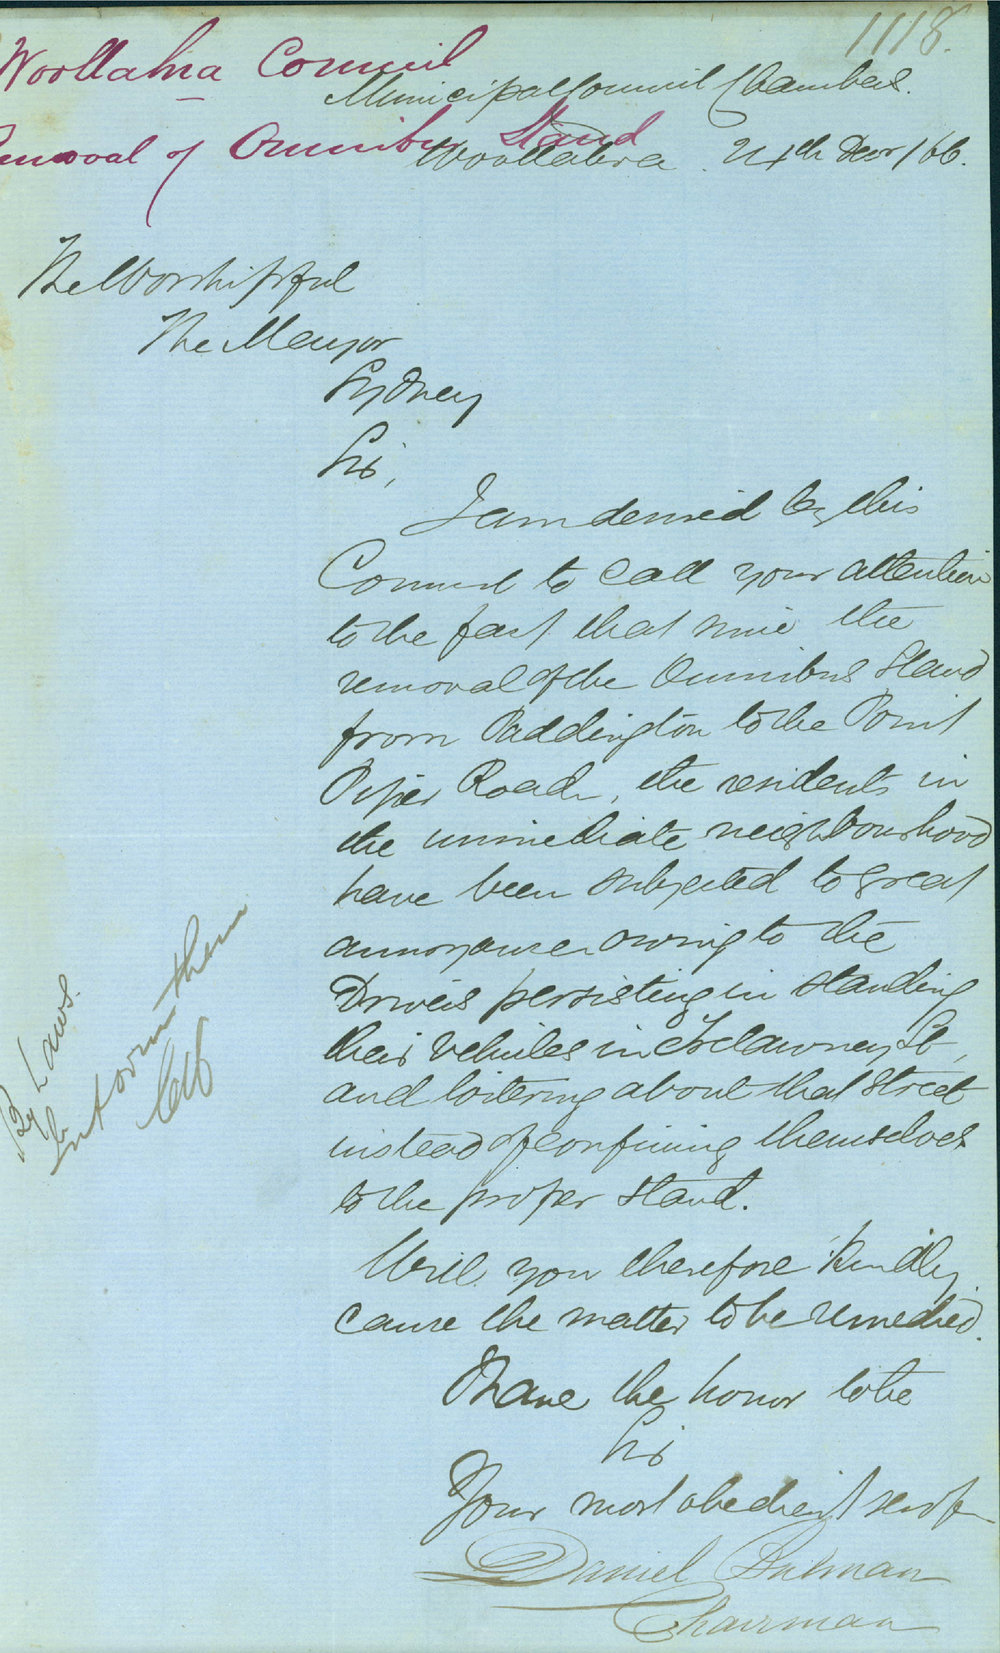 1118.
Woollahra Council
Municipal Council Chambers.
Removal of Omnibus Stand
Woollahra 24th Decr /66.
The Worshipful
The Mayor
Sydney
Sir,
I am desired by this
Council to call your attention
to the fact that since the
removal of the Omnibus Stand
from Paddington to the Point
Piper Road, the residents in
the immediate neighbourhood
have been subjected to great
annoyance owing to the
Drivers persisting in standing
their vehicles in Trelawney St,
and loitering about that street
instead of confining themselves
to the proper stand.
Will you therefore kindly
cause the matter to be remedied.
I have the honor to be
Sir
Your most obedient servt
Daniel
Chairman
By Laws.
Inform them